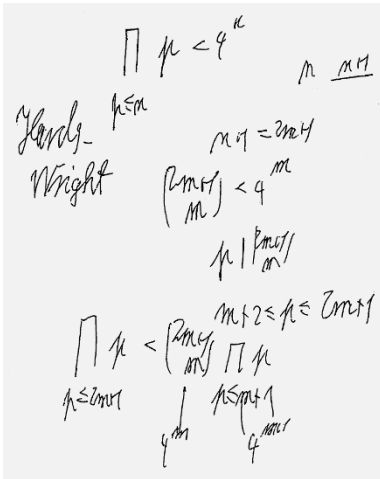 ∏ p < 4ⁿ
p≤n
n n+1
Hardy-
Wright
n+1 = 2m+1
(2m+1 m) < 4^m
p | (2m+1 m)
m+2 ≤ p ≤ 2m+1
∏ p < (2m+1 m) ∏ p
p≤2m+1 p≤m+1
4^m 4^m+1